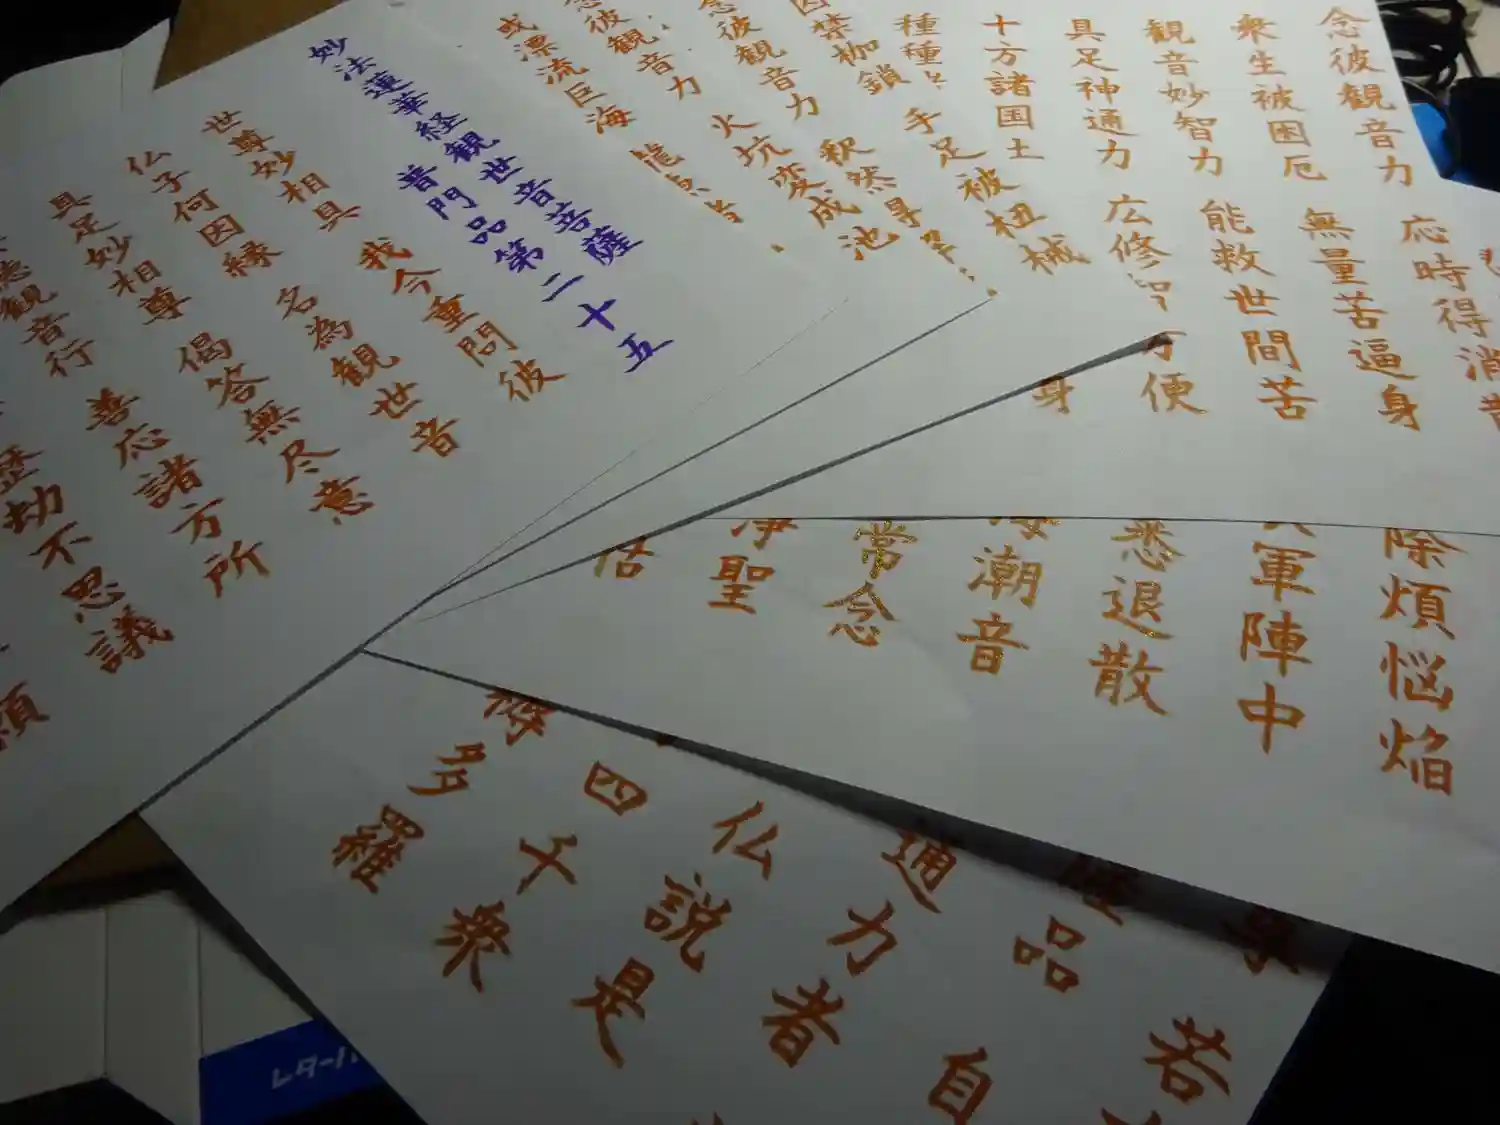 妙法蓮華経観世音菩薩
普門品第二十五
世尊妙相具 我今重問彼
仏子何因縁 名為観世音
具足妙相尊 偈答無尽意
聴観音行 善応諸方所
歴劫不思議
或漂流巨海 龍
念彼観音力
念彼観音力 火坑変成池
囚禁枷鎖 手足被杻械
念彼観音力
衆生被困厄 無量苦逼身
観音妙智力 能救世間苦
具足神通力 広修智方便
十方諸国土
身
種種
釈然得
応時得消
除煩悩焔
軍陣中
悉退散
海潮音
常念
浄聖
若
品
自
通力者
仏説是
四千衆
得多羅
レターパ